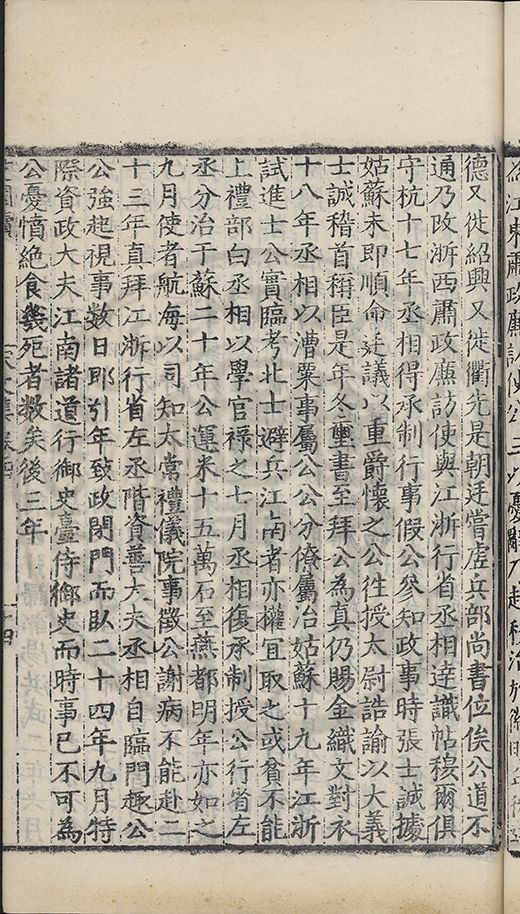 爲江東肅政廉訪使公三以憂辭乃起移治於
德又徙紹興又徙衢先是朝廷嘗虛兵部尚書位俟公道不
通乃改浙西肅政廉訪使與江浙行省丞相達識帖穆爾俱
守杭十七年丞相得承制行事假公參知政事時張士誠據
姑蘇未即順命廷議以重爵懷之公徃授太尉誥諭以大義
士誠稽首稱臣是年冬璽書至拜公爲真仍賜金織文對衣
十八年丞相以漕粟事屬公公分僚屬治姑蘇十九年江浙
試進士公實臨考北士避兵江南者亦權宜取之或貧不能
上禮部白丞相以學官祿之七月丞相復承制授公行省左
丞分治于蘇二十年公運米十五萬石至燕都明年亦如之
九月使者航海以同知太常禮儀院事徵公謝病不能赴二
十三年真拜江浙行省左丞階資善大夫丞相自臨門趣公
公強起視事數日即引年致政閉門而臥二十四年九月特
除資政大夫江南諸道行御史臺侍御史而時事已不可為
公憂憤絕食幾死者數矣後三年